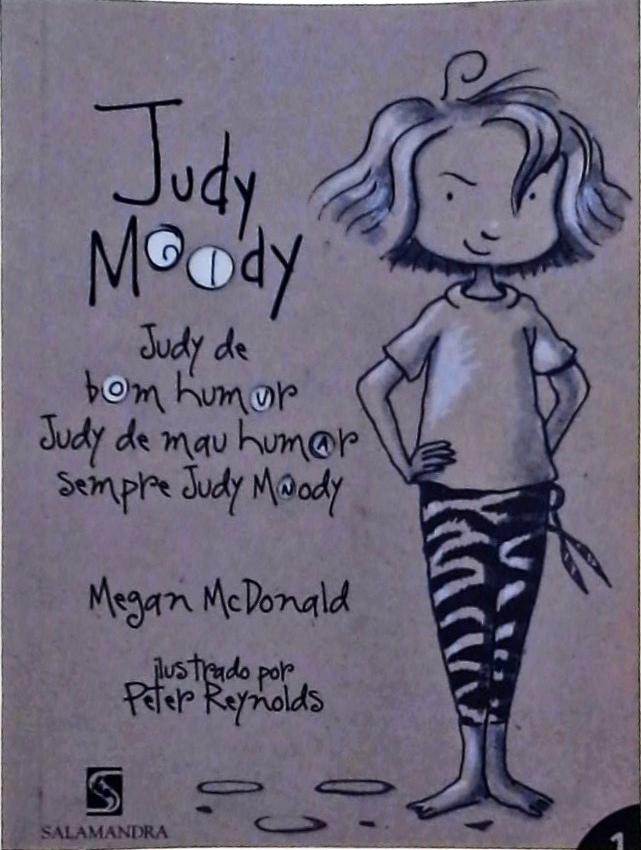 Judy
Moody
Judy de
bom humor
Judy de mau humor
sempre Judy Moody
Megan McDonald
ilustrado por
Peter Reynolds
SALAMANDRA
1